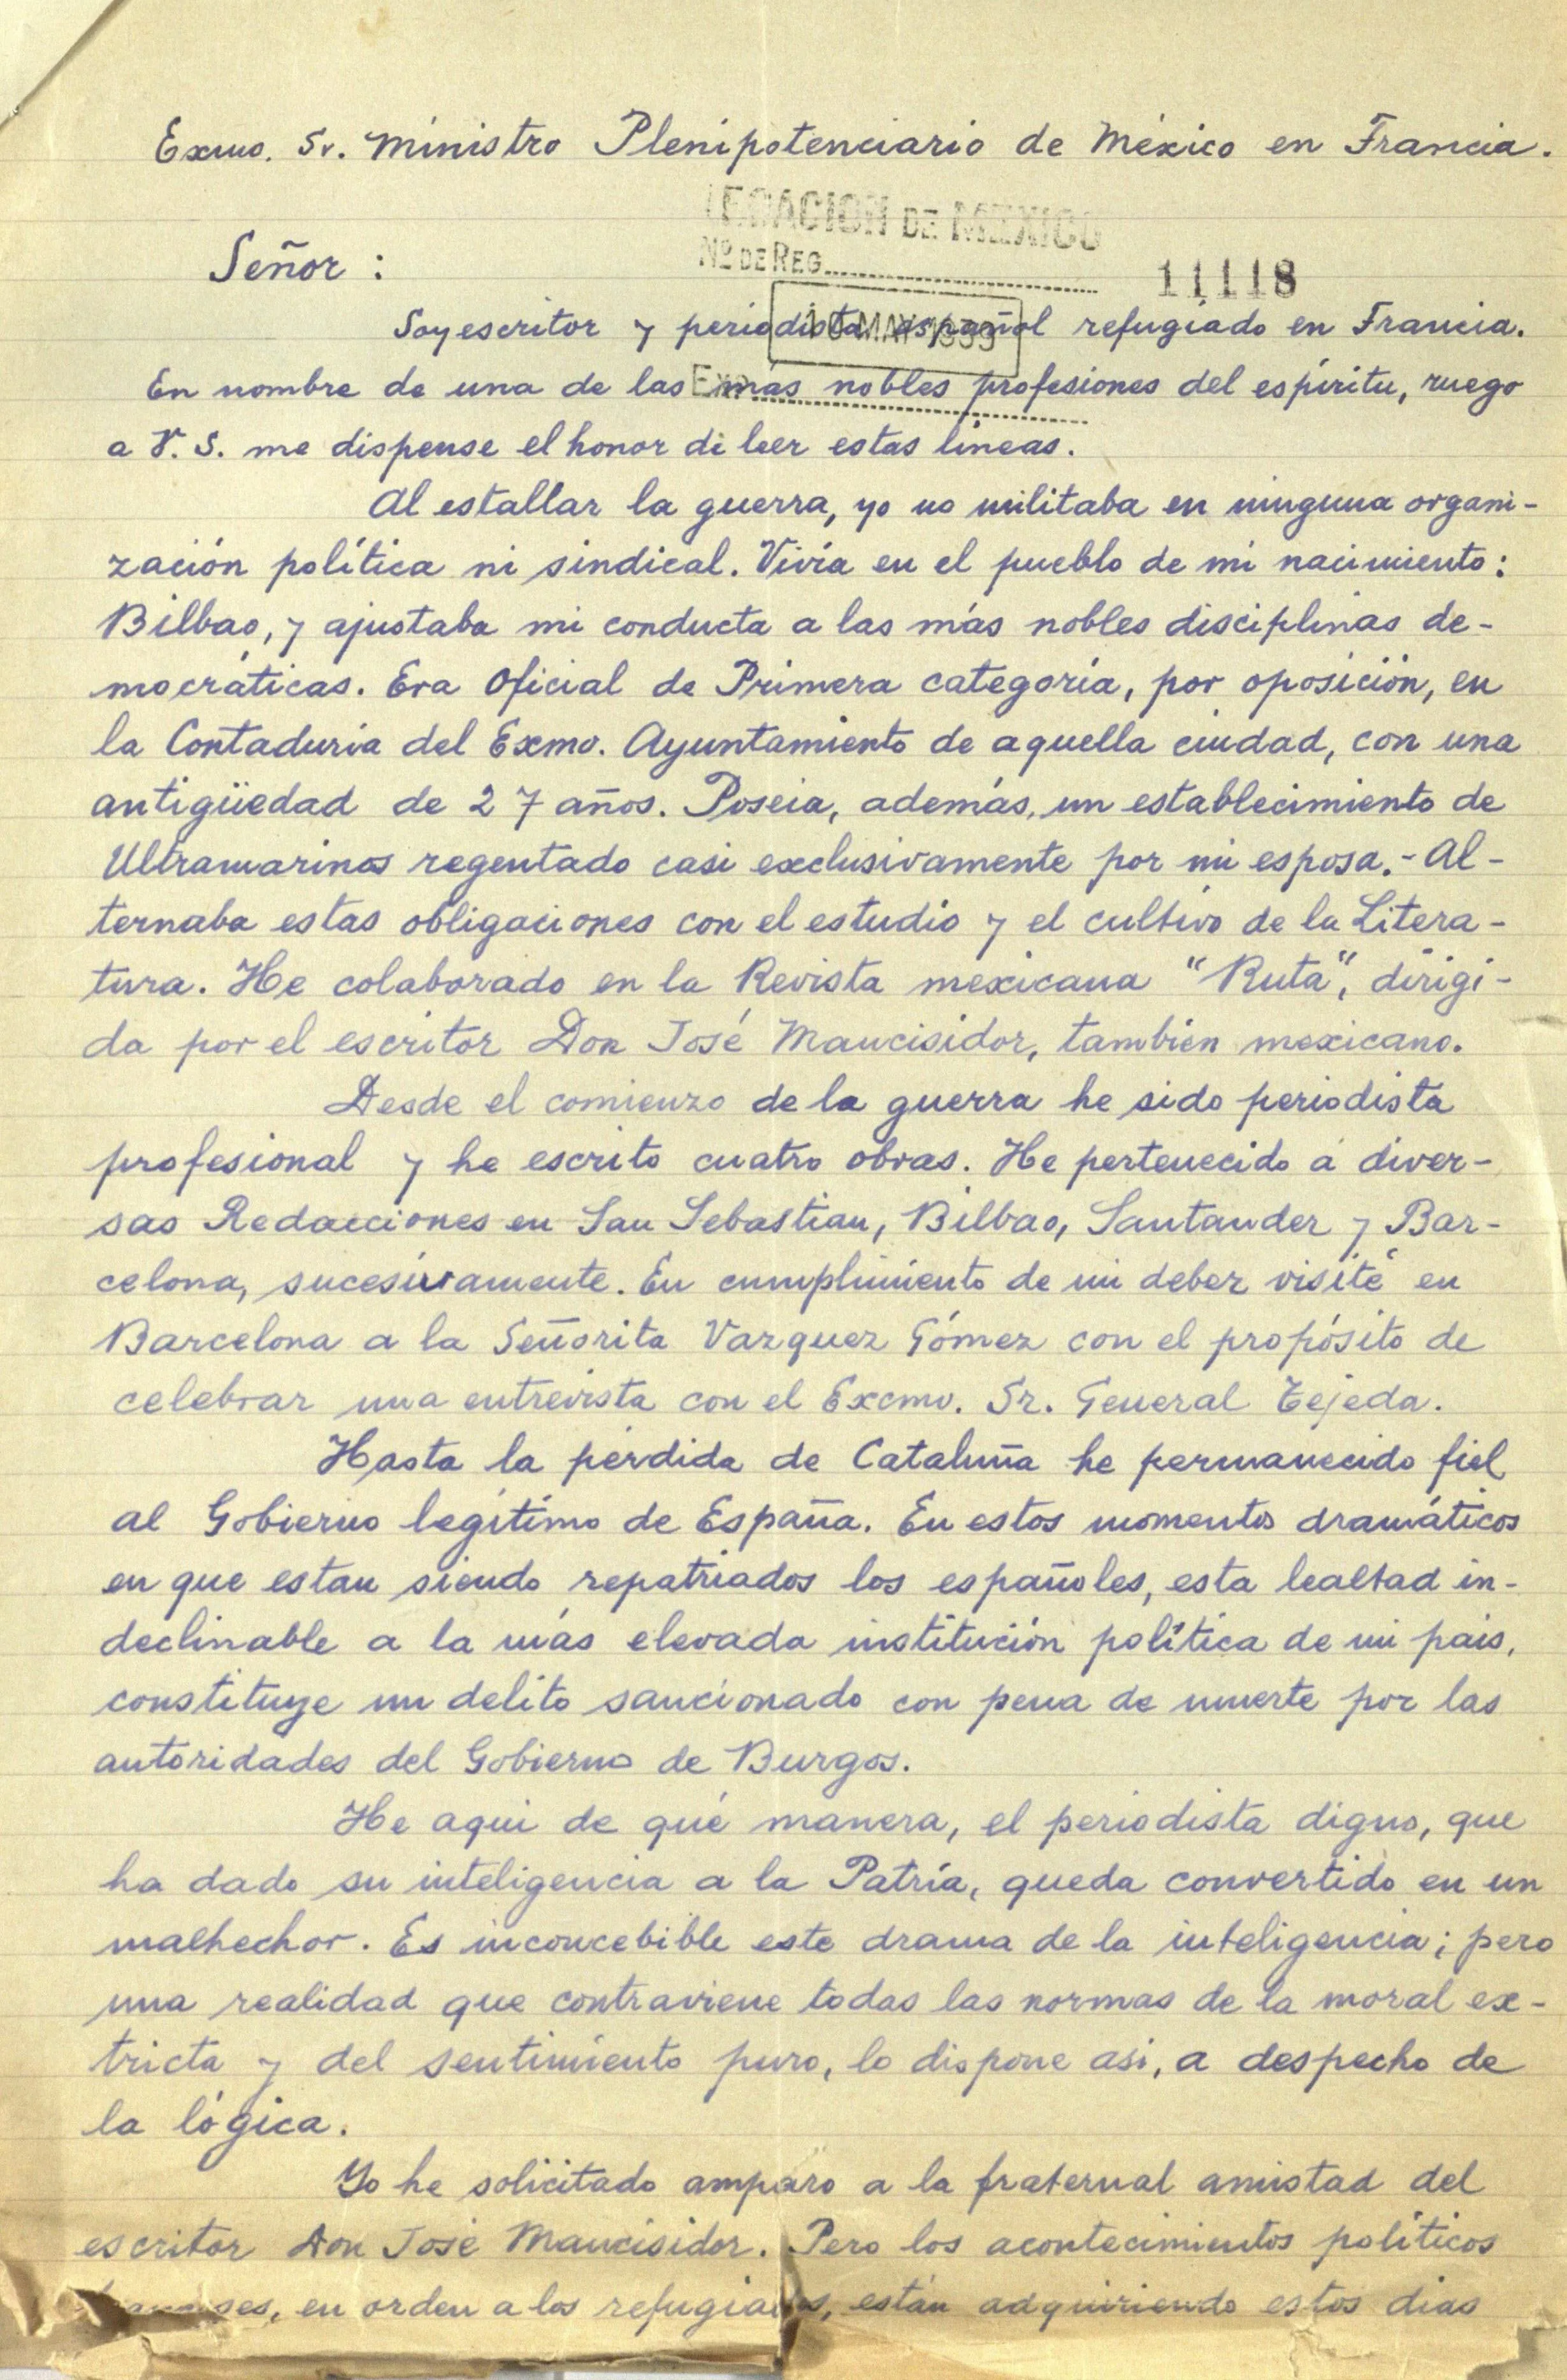 Exmo. Sr. Ministro Plenipotenciario de México en Francia.
LEGACION DE MEXICO
Nº DE REG.
11118
Señor:
MAY 1939
Soy escritor y periodista español refugiado en Francia.
En nombre de una de las más nobles profesiones del espíritu, ruego
a V. S. me dispense el honor de leer estas líneas.
Al estallar la guerra, yo no militaba en ninguna organi-
zación política ni sindical. Vivía en el pueblo de mi nacimiento:
Bilbao, y ajustaba mi conducta a las más nobles disciplinas de-
mocráticas. Era Oficial de Primera categoría, por oposición, en
la Contaduría del Exmo. Ayuntamiento de aquella ciudad, con una
antigüedad de 27 años. Poseia, además, un establecimiento de
Ultramarinos regentado casi exclusivamente por mi esposa.- Al-
ternaba estas obligaciones con el estudio y el cultivo de la Litera-
tura. He colaborado en la Revista mexicana "Ruta", dirigi-
da por el escritor Don José Mancisidor, también mexicano.
Desde el comienzo de la guerra he sido periodista
profesional y he escrito cuatro obras. He pertenecido a diver-
sas Redacciones en San Sebastian, Bilbao, Santander y Bar-
celona, sucesivamente. En cumplimiento de mi deber visité en
Barcelona a la Señorita Vazquez Gómez con el propósito de
celebrar una entrevista con el Excmo. Sr. General Tejeda.
Hasta la pérdida de Cataluña he permanecido fiel
al Gobierno legítimo de España. En estos momentos dramáticos
en que estan siendo repatriados los españoles, esta lealtad in-
declinable a la más elevada institución política de mi pais,
constituye un delito sancionado con pena de muerte por las
autoridades del Gobierno de Burgos.
He aqui de qué manera, el periodista digno, que
ha dado su inteligencia a la Patria, queda convertido en un
malhechor. Es inconcebible este drama de la inteligencia; pero
una realidad que contraviene todas las normas de la moral ex-
tricta y del sentimiento puro, lo dispone asi, a despecho de
la lógica.
Yo he solicitado amparo a la fraternal amistad del
escritor Don José Mancisidor. Pero los acontecimientos políticos
en orden a los refugiados, están adquiriendo estos dias